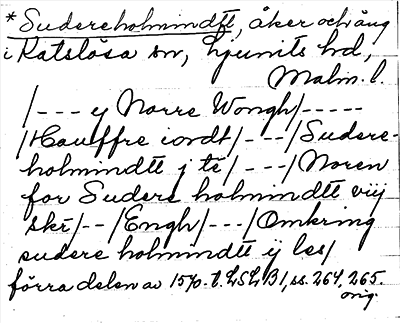 *Sudereholmindtt, åker och äng
i Katslösa sn, Ljunits hd,
Malm. l.
/--- y Norre Wongh/-----
/Hauffre iordt/---/Sudere-
holmindtt j te/---/Noren
for Sudere holmindtt viij
skr/--/Engh/---/Omkring
sudere holmindtt ij les/
förra delen av 1570-t. LSLB1, ss. 264, 265.
orig.